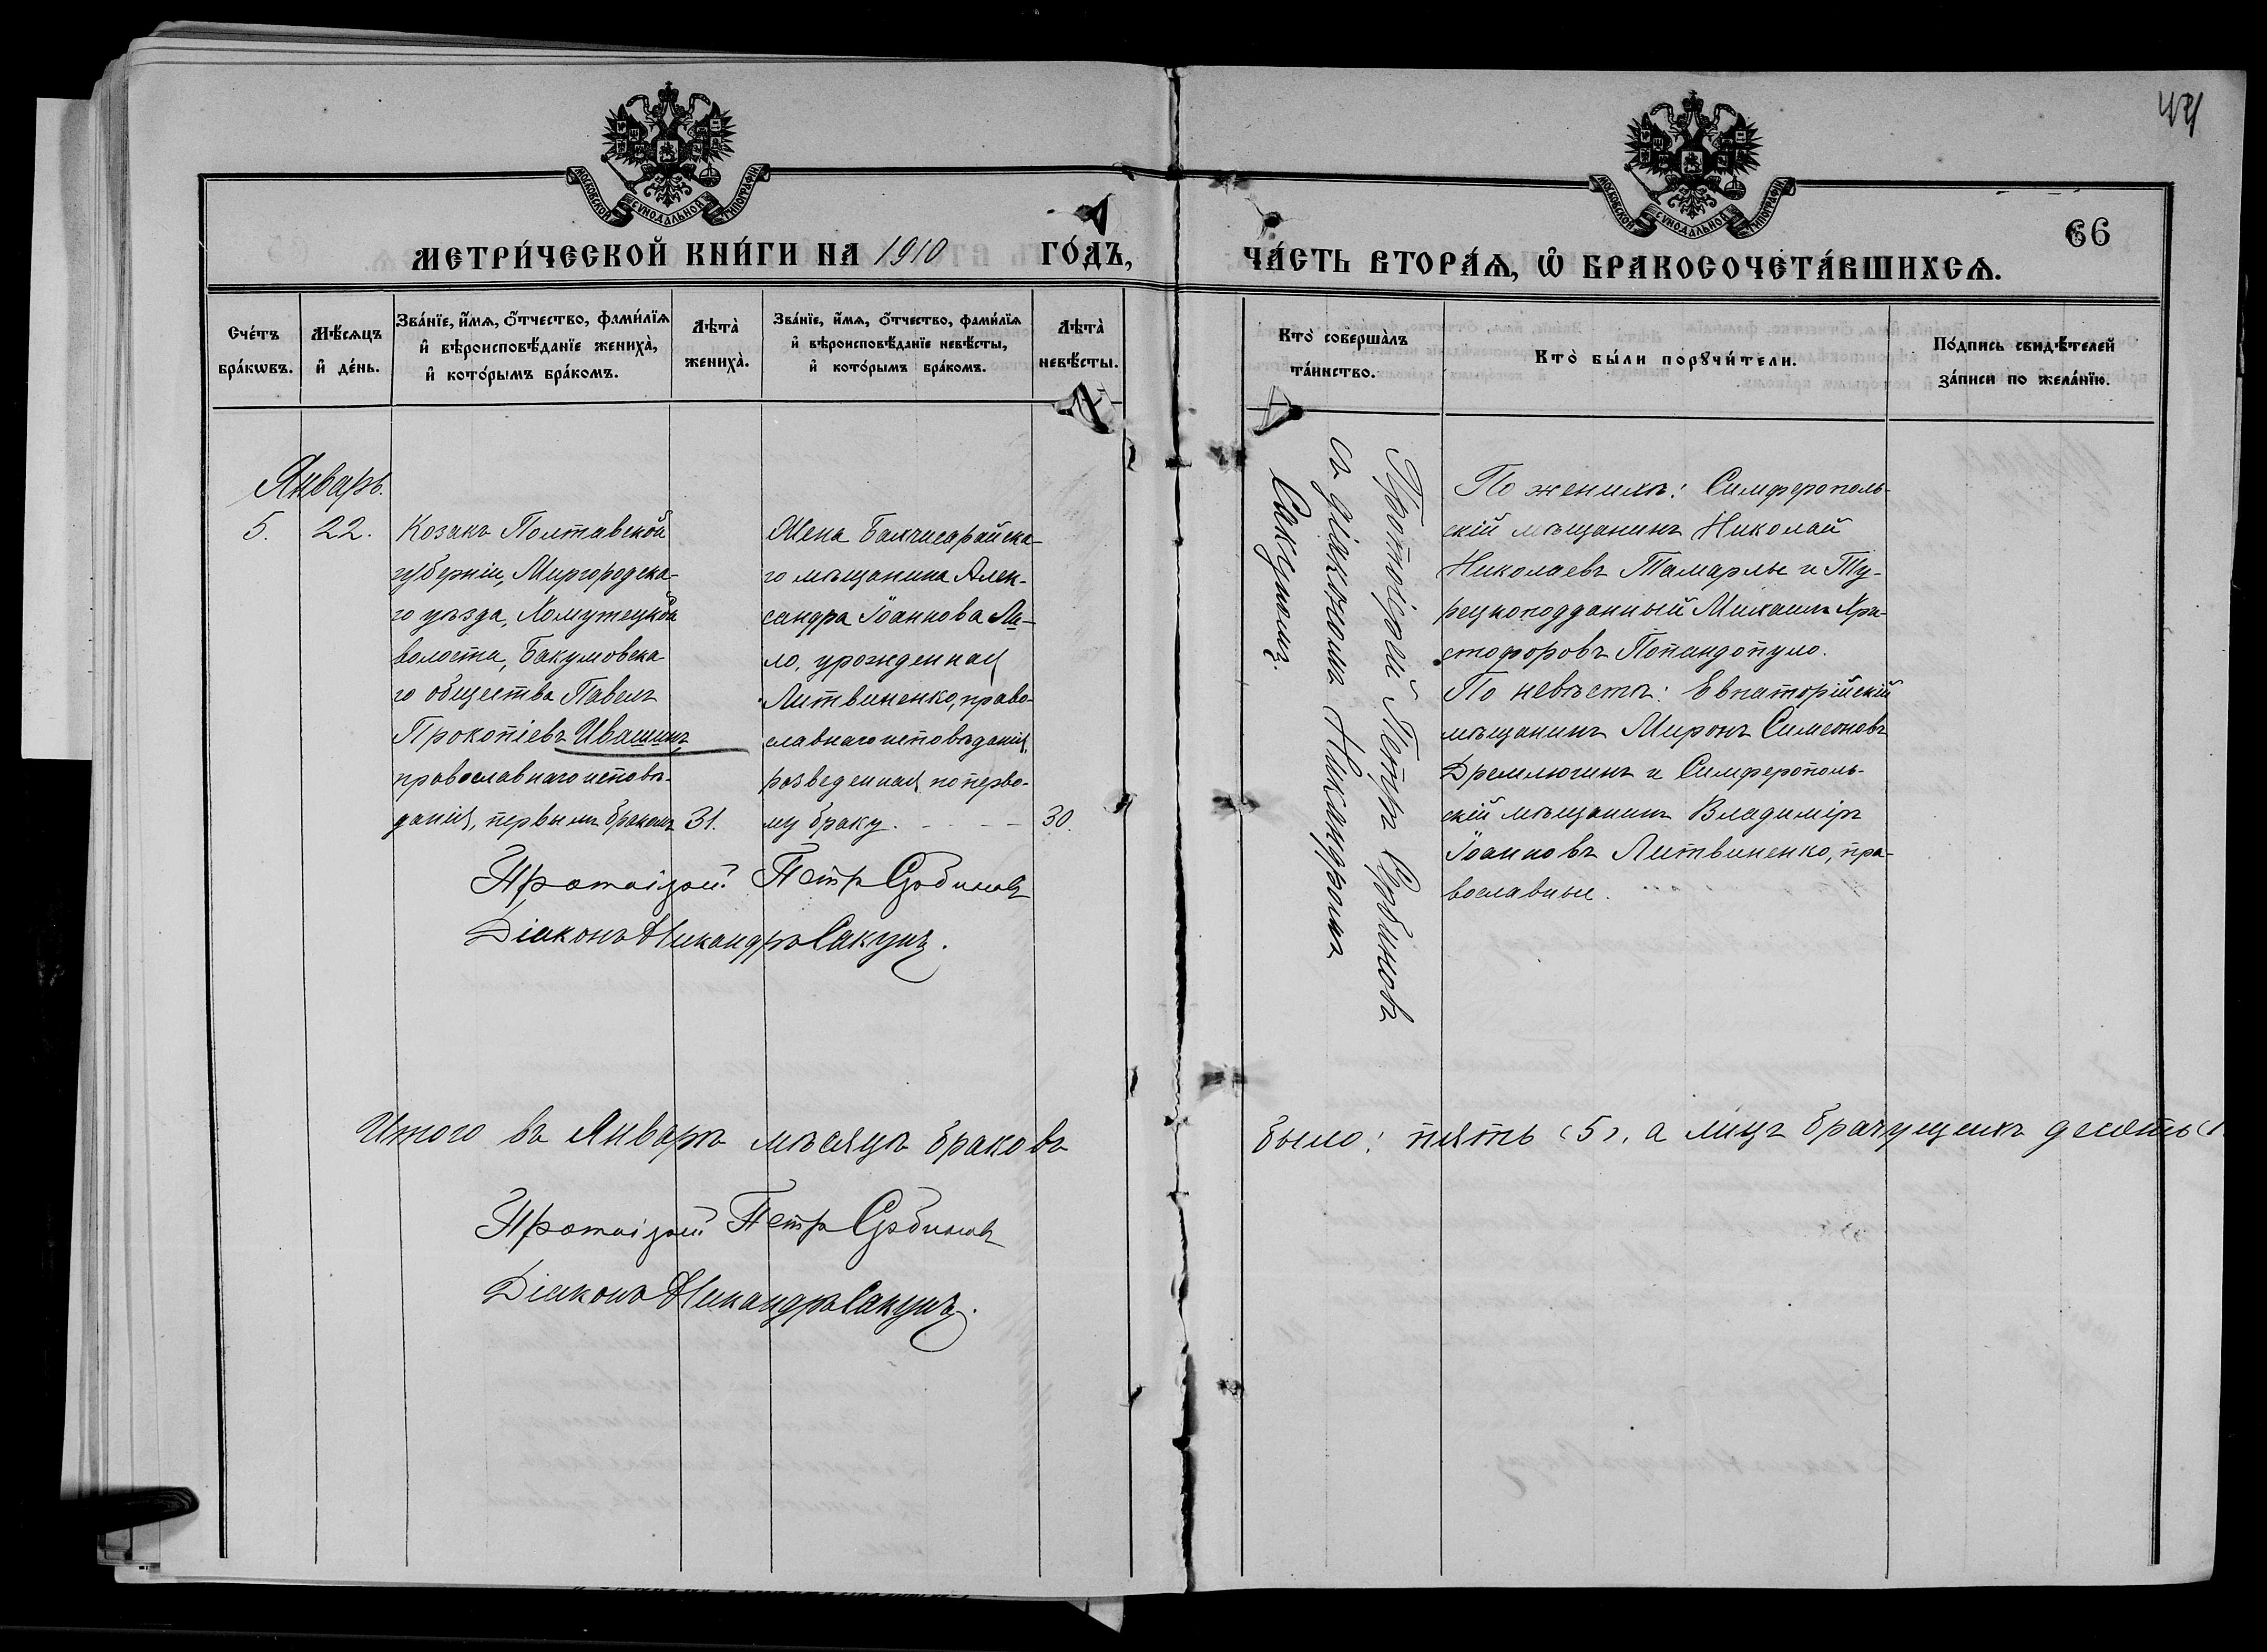 44
МОСКОВСКОЙ СѴНОДАЛЬНОЙ ТИПОГРАФІИ
МОСКОВСКОЙ СѴНОДАЛЬНОЙ ТИПОГРАФІИ
66
МЕТРИ́ЧЕСКОЙ КНИ́ГИ НА 1910 ГО́ДЪ,
ЧА́СТЬ ВТОРА́Ѧ, Ѡ҆ БРАКОСОЧЕТА́ВШИХСѦ.
Сче́тъ
бра́кѡвъ.
Мѣ́сѧцъ
и҆ де́нь.
Зва́нїе, и҆́мѧ, ѻ҆́тчество, фами́лїѧ
и҆ вѣроисповѣ́данїе жениха̀,
и҆ кото́рымъ бра́комъ.
Лѣта̀
жениха̀.
Зва́нїе, и҆́мѧ, ѻ҆́тчество, фами́лїѧ
и҆ вѣроисповѣ́данїе невѣ́сты,
и҆ кото́рымъ бра́комъ.
Лѣта̀
невѣ́сты.
Кто̀ соверша̀лъ
та́инство.
Кто̀ бы́ли порꙋчи́тели.
По́дпись свидѣ́телей
за́писи по жела́нїю.
Январь.
5.
22.
Козакъ Полтавской
губерніи, Миргородска-
го уѣзда, Хомутецкой
волости, Бакумовска
го общества Павелъ
Прокопіевъ Ивашинъ
православнаго исповѣ-
данія, первымъ бракомъ
31.
Жена Бахчисарайска-
го мѣщанина Алек-
сандра Іоаннова Ми-
ло, урожденная
Литвиненко, право-
славнаго исповѣданія,
разведенная по перво-
му браку.
30.
Протоіерей Петръ Сербиновъ
съ діакономъ Никандромъ
Сакуномъ.
По женихѣ: Симферополь-
скій мѣщанинъ Николай
Николаевъ Тамарлы и Ту-
рецкоподданный Михаилъ Хри-
стофоровъ Попандопуло.
По невѣстѣ: Евпаторійскій
мѣщанинъ Миронъ Симеоновъ
Дремлюгинъ и Симферополь-
скій мѣщанинъ Владиміръ
Іоанновъ Литвиненко, пра-
вославные.
Протоіерей Петръ Сербиновъ
Діаконъ Никандръ Сакунъ.
Итого въ Январѣ мѣсяцѣ браковъ было: пять (5), а лицъ брачущихся десять (1
Протоіерей Петръ Сербиновъ
Діаконъ Никандръ Сакунъ.